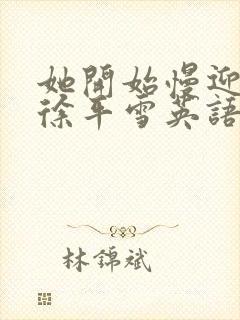 她開始慢迎
徐平雪英語
林錦斌